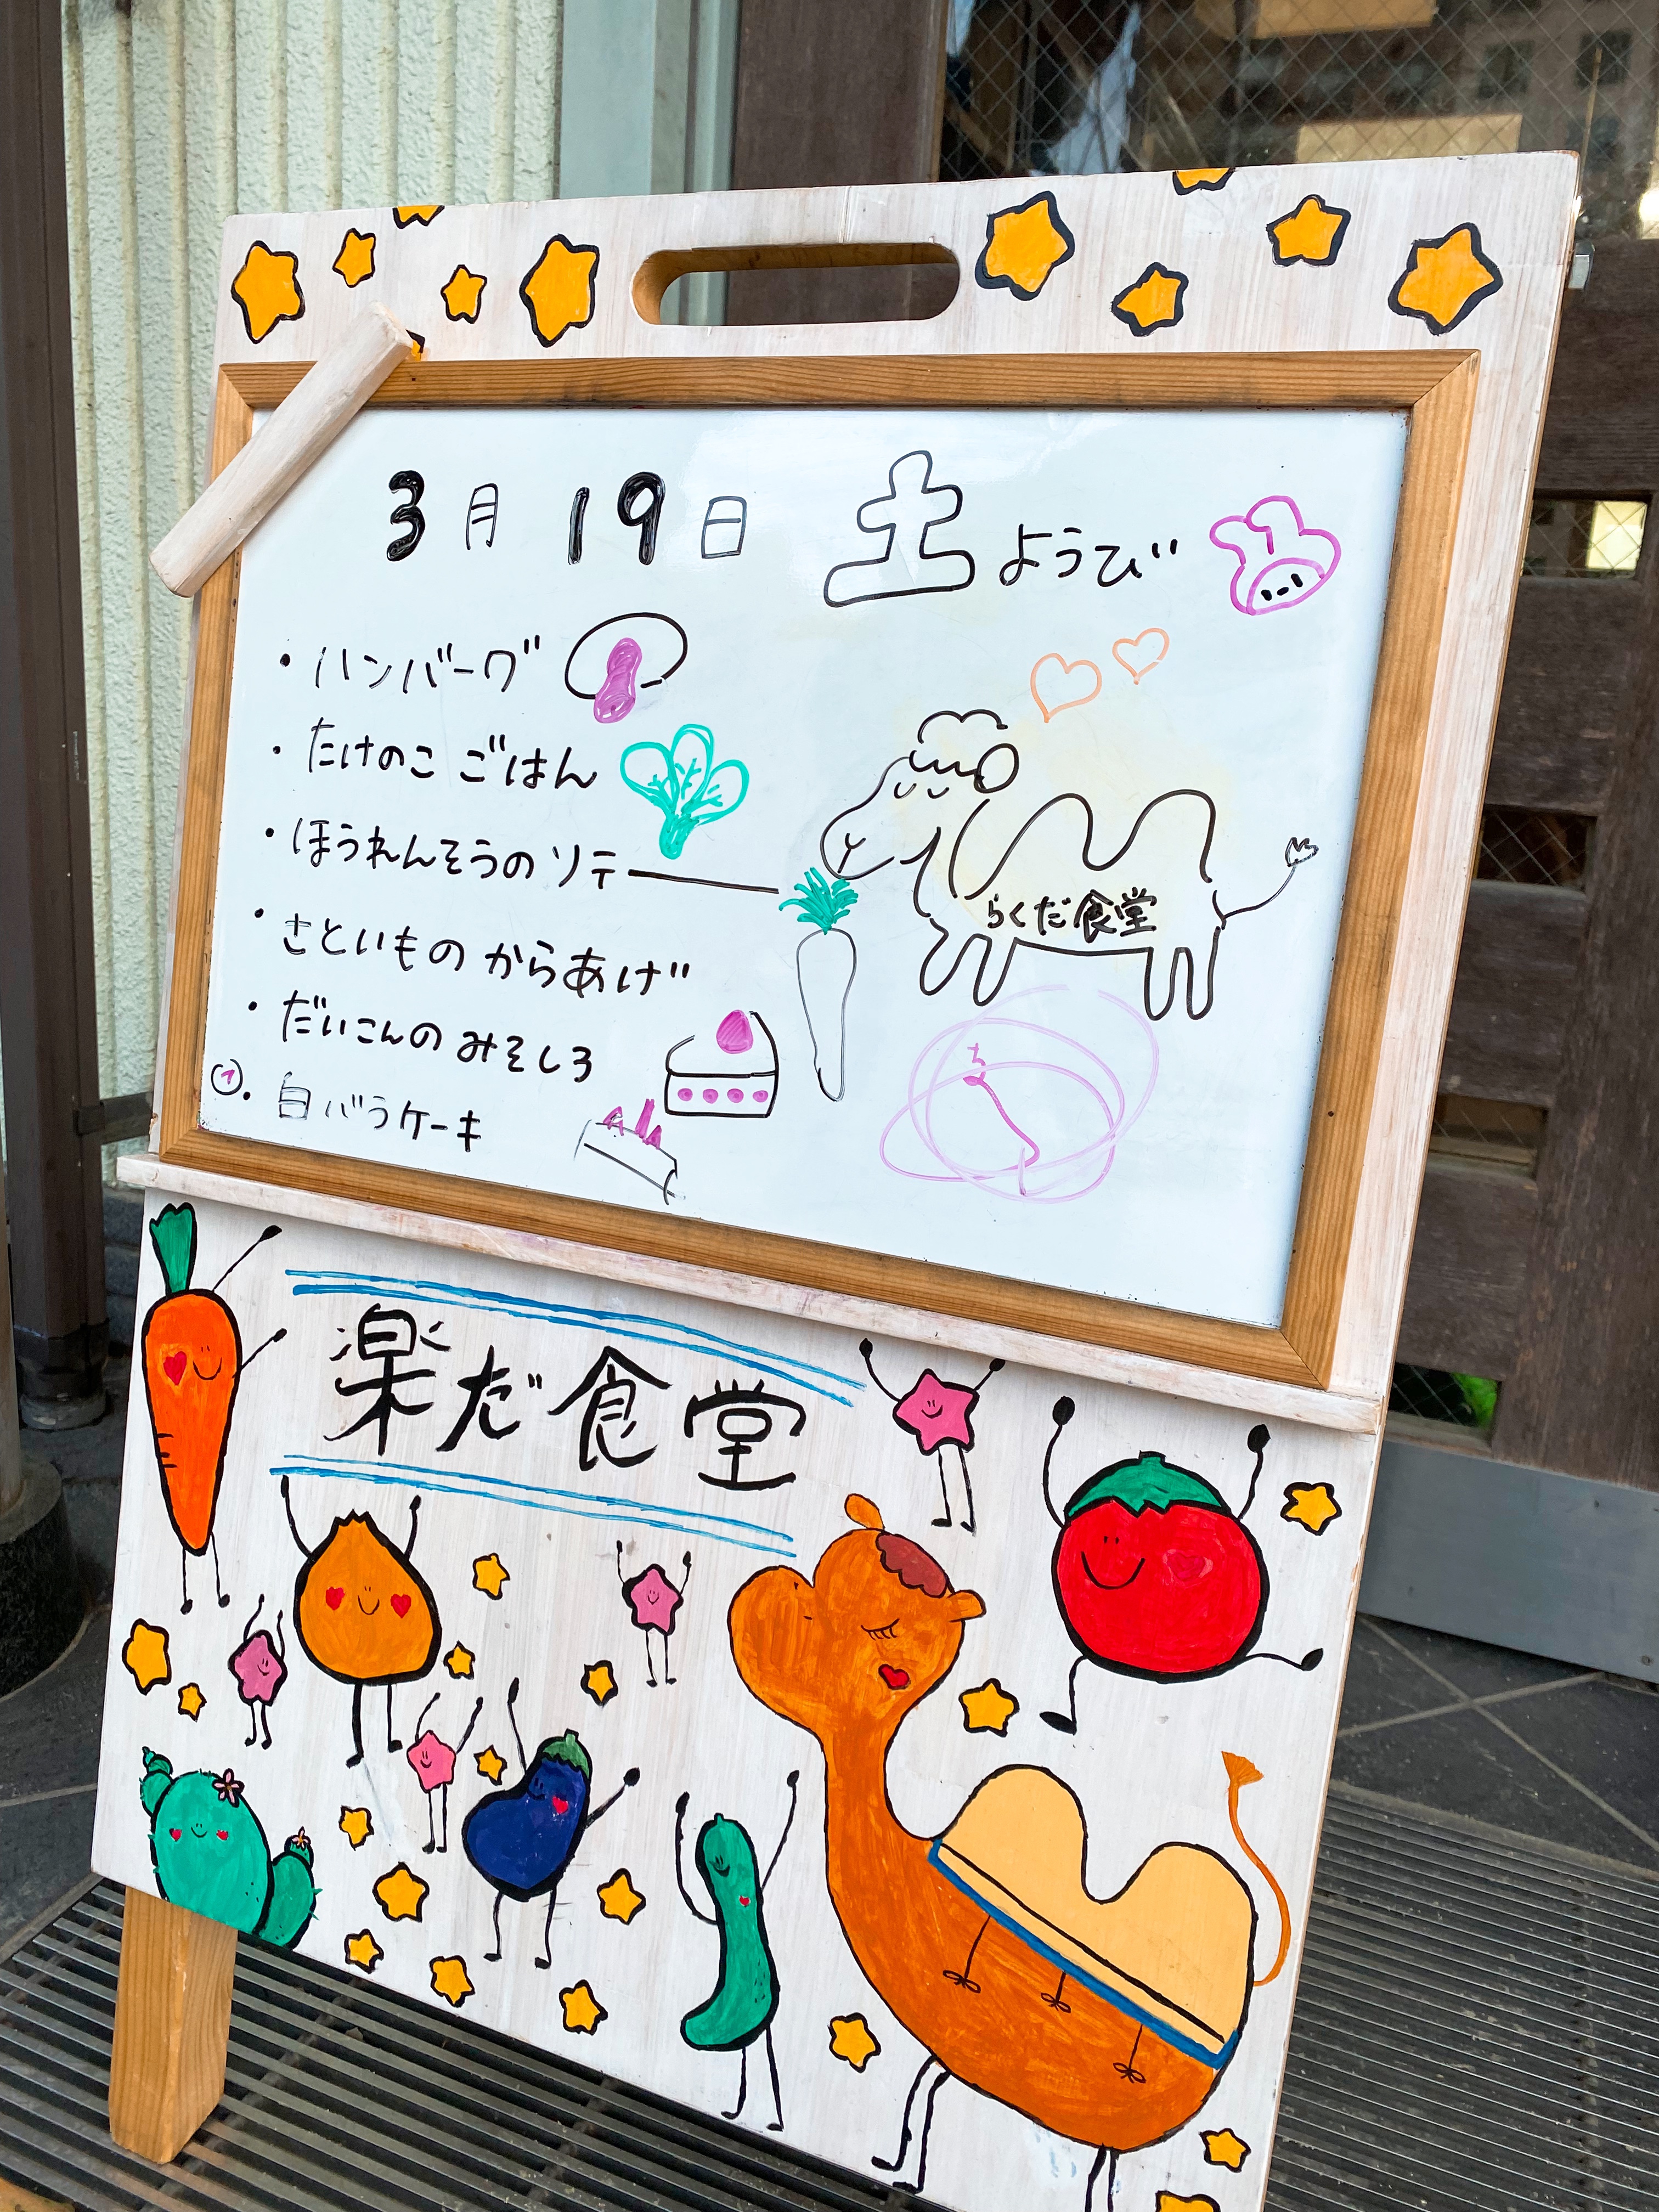 3月 19日 土ようび
・ハンバーグ
・たけのこ ごはん
・ほうれんそうの ソテー
・さといもの からあげ
・だいこんの みそしる
・自バラケーキ
らくだ食堂
楽だ食堂